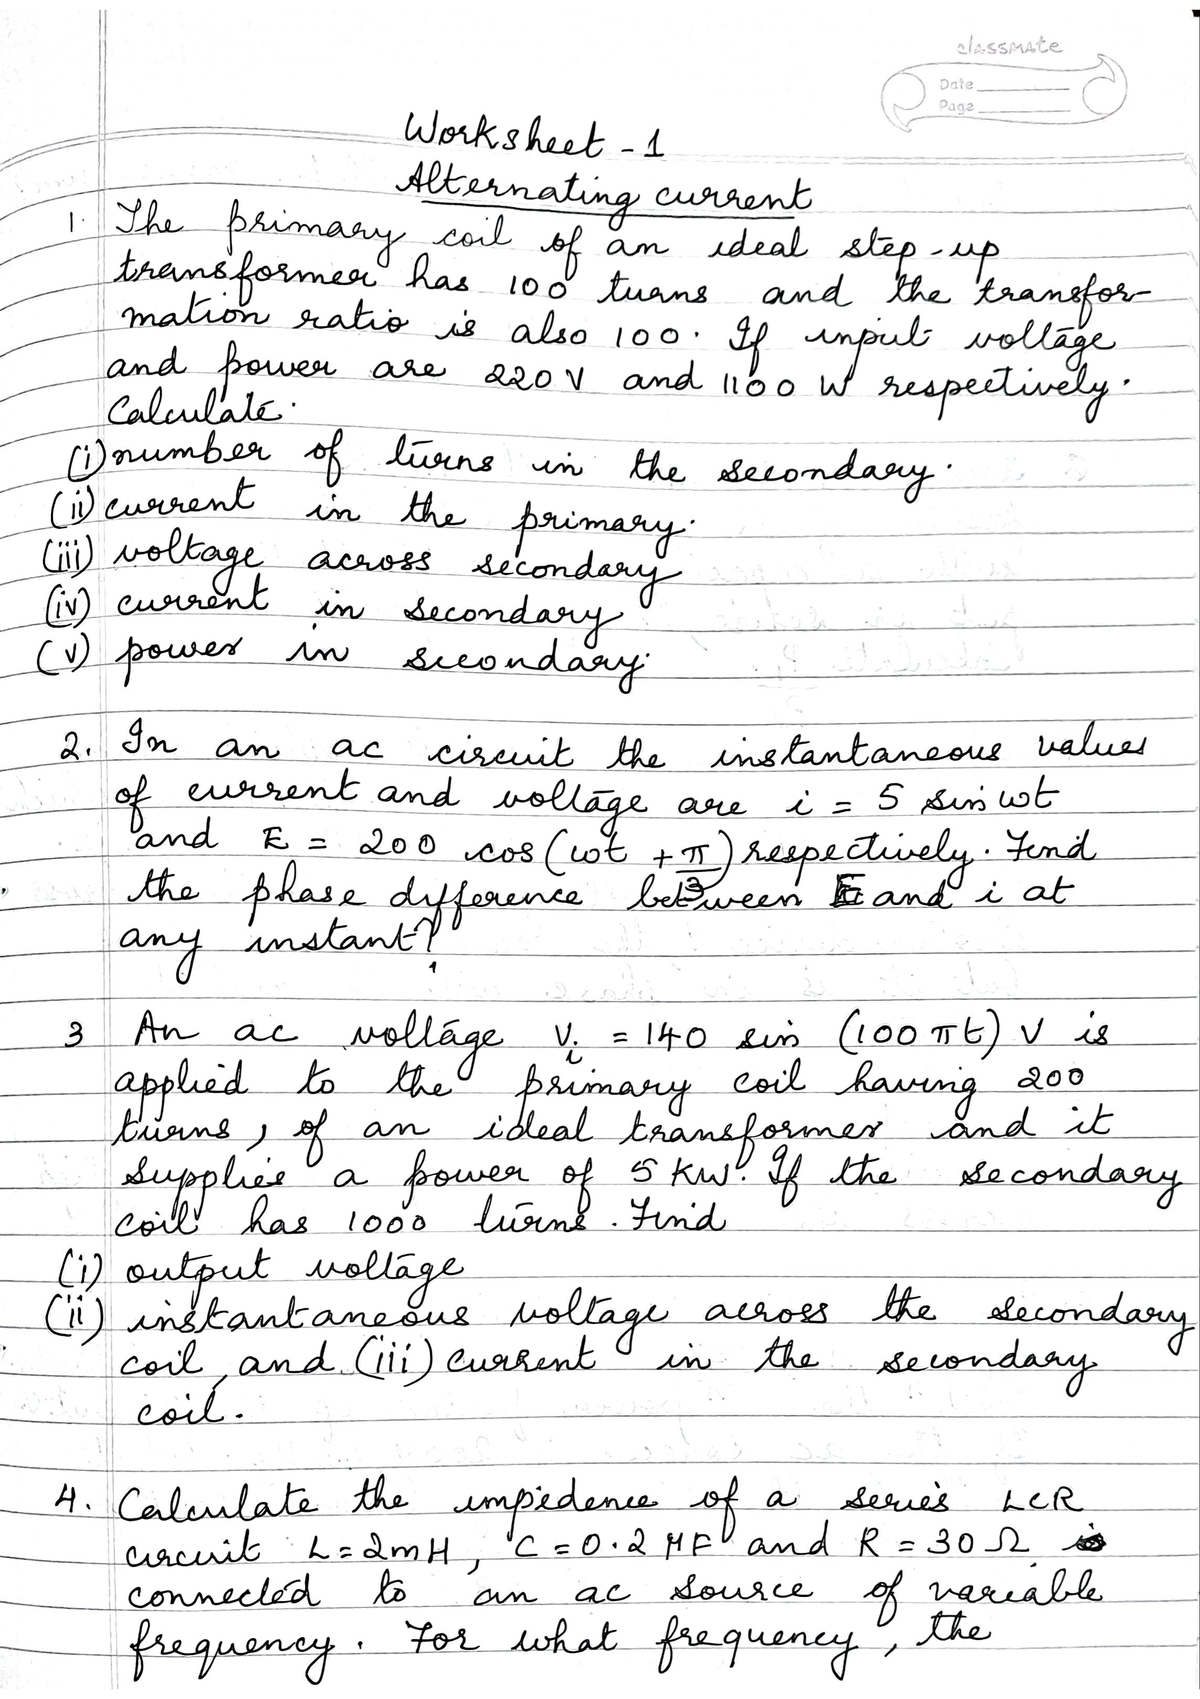 classmate
Date
Page
Worksheet - 1
Alternating current
1. The primary coil of an ideal step-up
transformer has 100 turns and the transfor-
mation ratio is also 100. If input voltage
and power are 220 V and 1100 W respectively.
Calculate.
(i) number of turns in the secondary.
(ii) current in the primary.
(iii) voltage across secondary
(iv) current in secondary
(v) power in secondary.
2. In an ac circuit the instantaneous values
of current and voltage are i = 5 sin ωt
and E = 200 cos (ωt + π/3) respectively. Find
the phase difference between E and i at
any instant?
3 An ac voltage Vi = 140 sin (100 πt) V is
applied to the primary coil having 200
turns, of an ideal transformer and it
supplies a power of 5 KW. If the secondary
coil has 1000 turns. Find
(i) output voltage
(ii) instantaneous voltage across the secondary
coil, and (iii) current in the secondary
coil.
4. Calculate the impedence of a series LCR
circuit L = 2mH, C = 0.2 μF and R = 30 Ω
connected to an ac source of variable
frequency. For what frequency, the